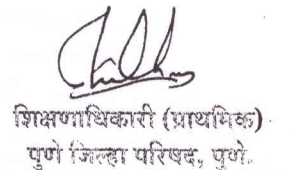 शिक्षणाधिकारी (प्राथमिक)
पुणे जिल्हा परिषद, पुणे.